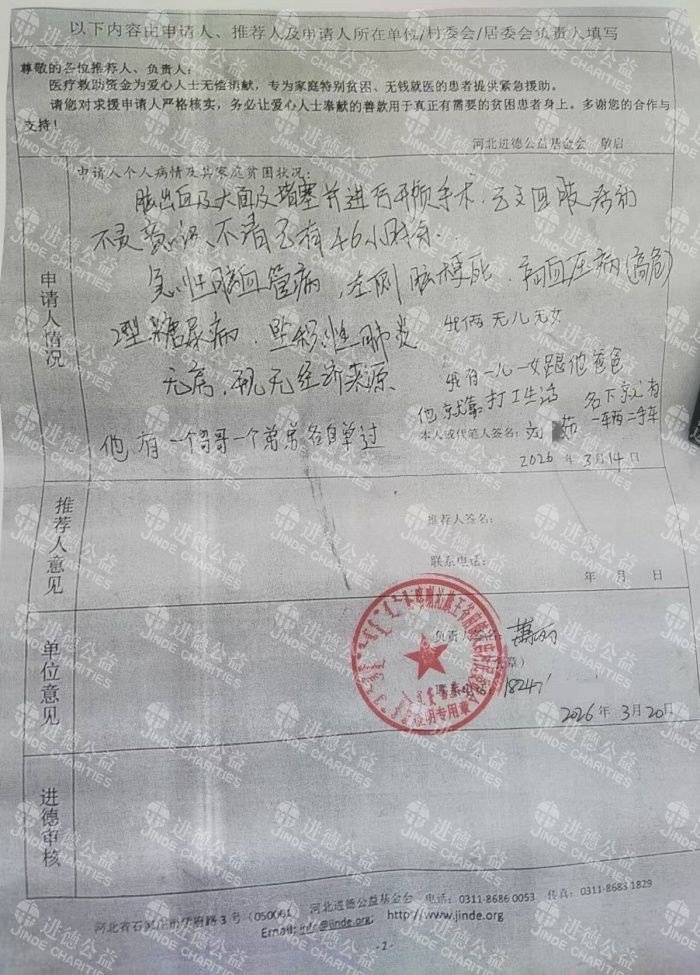 以下内容由申请人、推荐人及申请人所在单位/村委会/居委会负责人填写
尊敬的各位推荐人、负责人：
医疗救助资金为爱心人士无偿捐献，专为家庭特别贫困、无钱就医的患者提供紧急援助。
请您对求援申请人严格核实，务必让爱心人士奉献的善款用于真正有需要的贫困患者身上。多谢您的合作与
支持！
河北进德公益基金会 敬启
申请人情况
申请人个人病情及其家庭贫困状况：
脑出血及大面及堵塞并进行开颅手术.
不清已有46小时余.
急性脑血管病，左侧脑梗死.高血压病(高危)
2型糖尿病.坠积性肺炎
我俩无儿无女
无病.现无经济来源
我有一儿一女跟他爸爸
他就靠打工生活
名下就有
一车两二手车
他有一个哥哥一个弟弟各自单过
本人或代笔人签名：刘 茹
2026年3月14日
推荐人意见
推荐人签名：
联系电话：
年 月 日
单位意见
负责人签名：萧丽
联系电话：18247
证明专用章
2026年3月20日
进德审核
河北省石家庄市 路3号（050061 河北进德公益基金会 电话：0311-8686 0053 传真：0311-8683 1829
Email: info@jinde.org; http://www.jinde.org
-2-
进德公益
JINDE CHARITIES